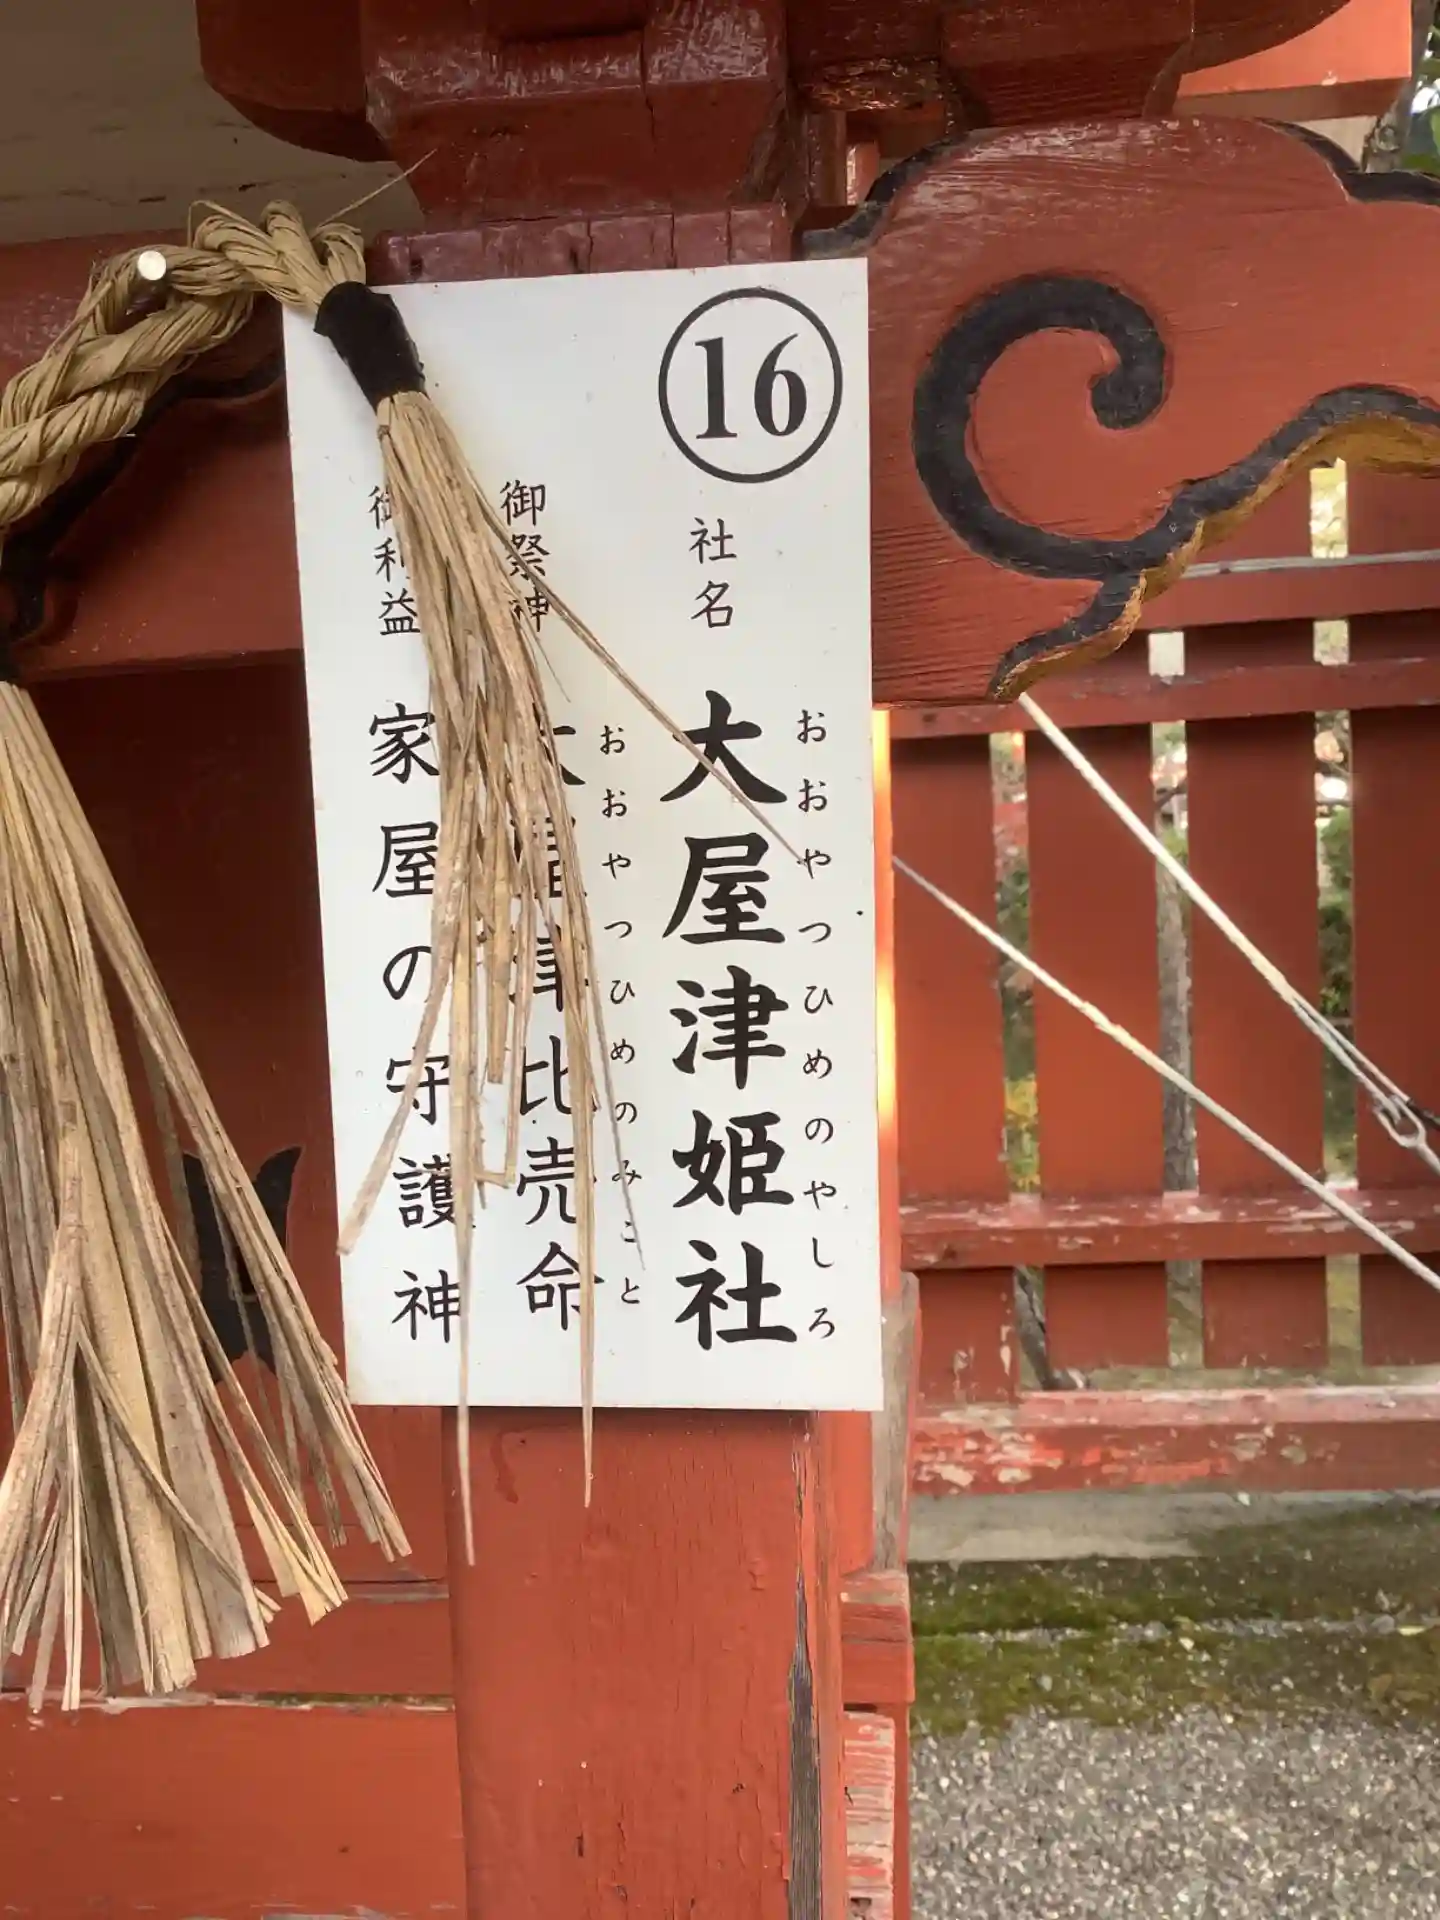 16
社名 大屋津姫社
おおやつひめのやしろ
御祭神 大屋津比売命
おおやつひめのみこと
御利益 家屋の守護神